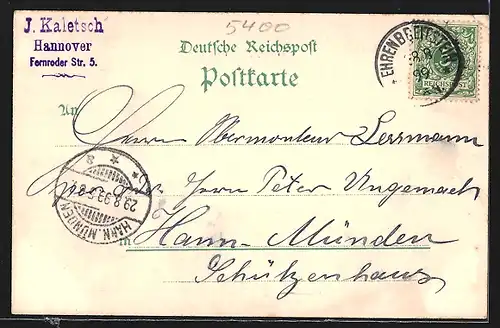 5400
J. Kaletsch
Hannover
Fernroder Str. 5.
Deutsche Reichspost
Postkarte
EHRENBREITSTEIN
99
REICHSPOST
An
Herrn Obermonteur Lessmann
Herrn Peter Ungemach
29.8.99
HANN. MÜNDEN
in Hann-Münden
Schützenhaus